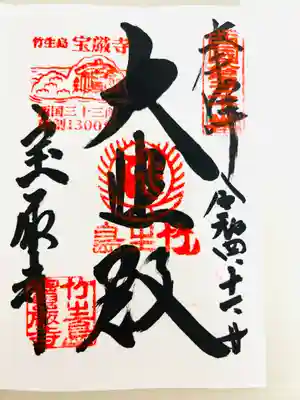 奉拝
令和四・十一・廿
大悲殿
宝厳寺
竹生島 宝厳寺
西国三十三所
草創1300年
竹生島
竹生島
宝厳寺